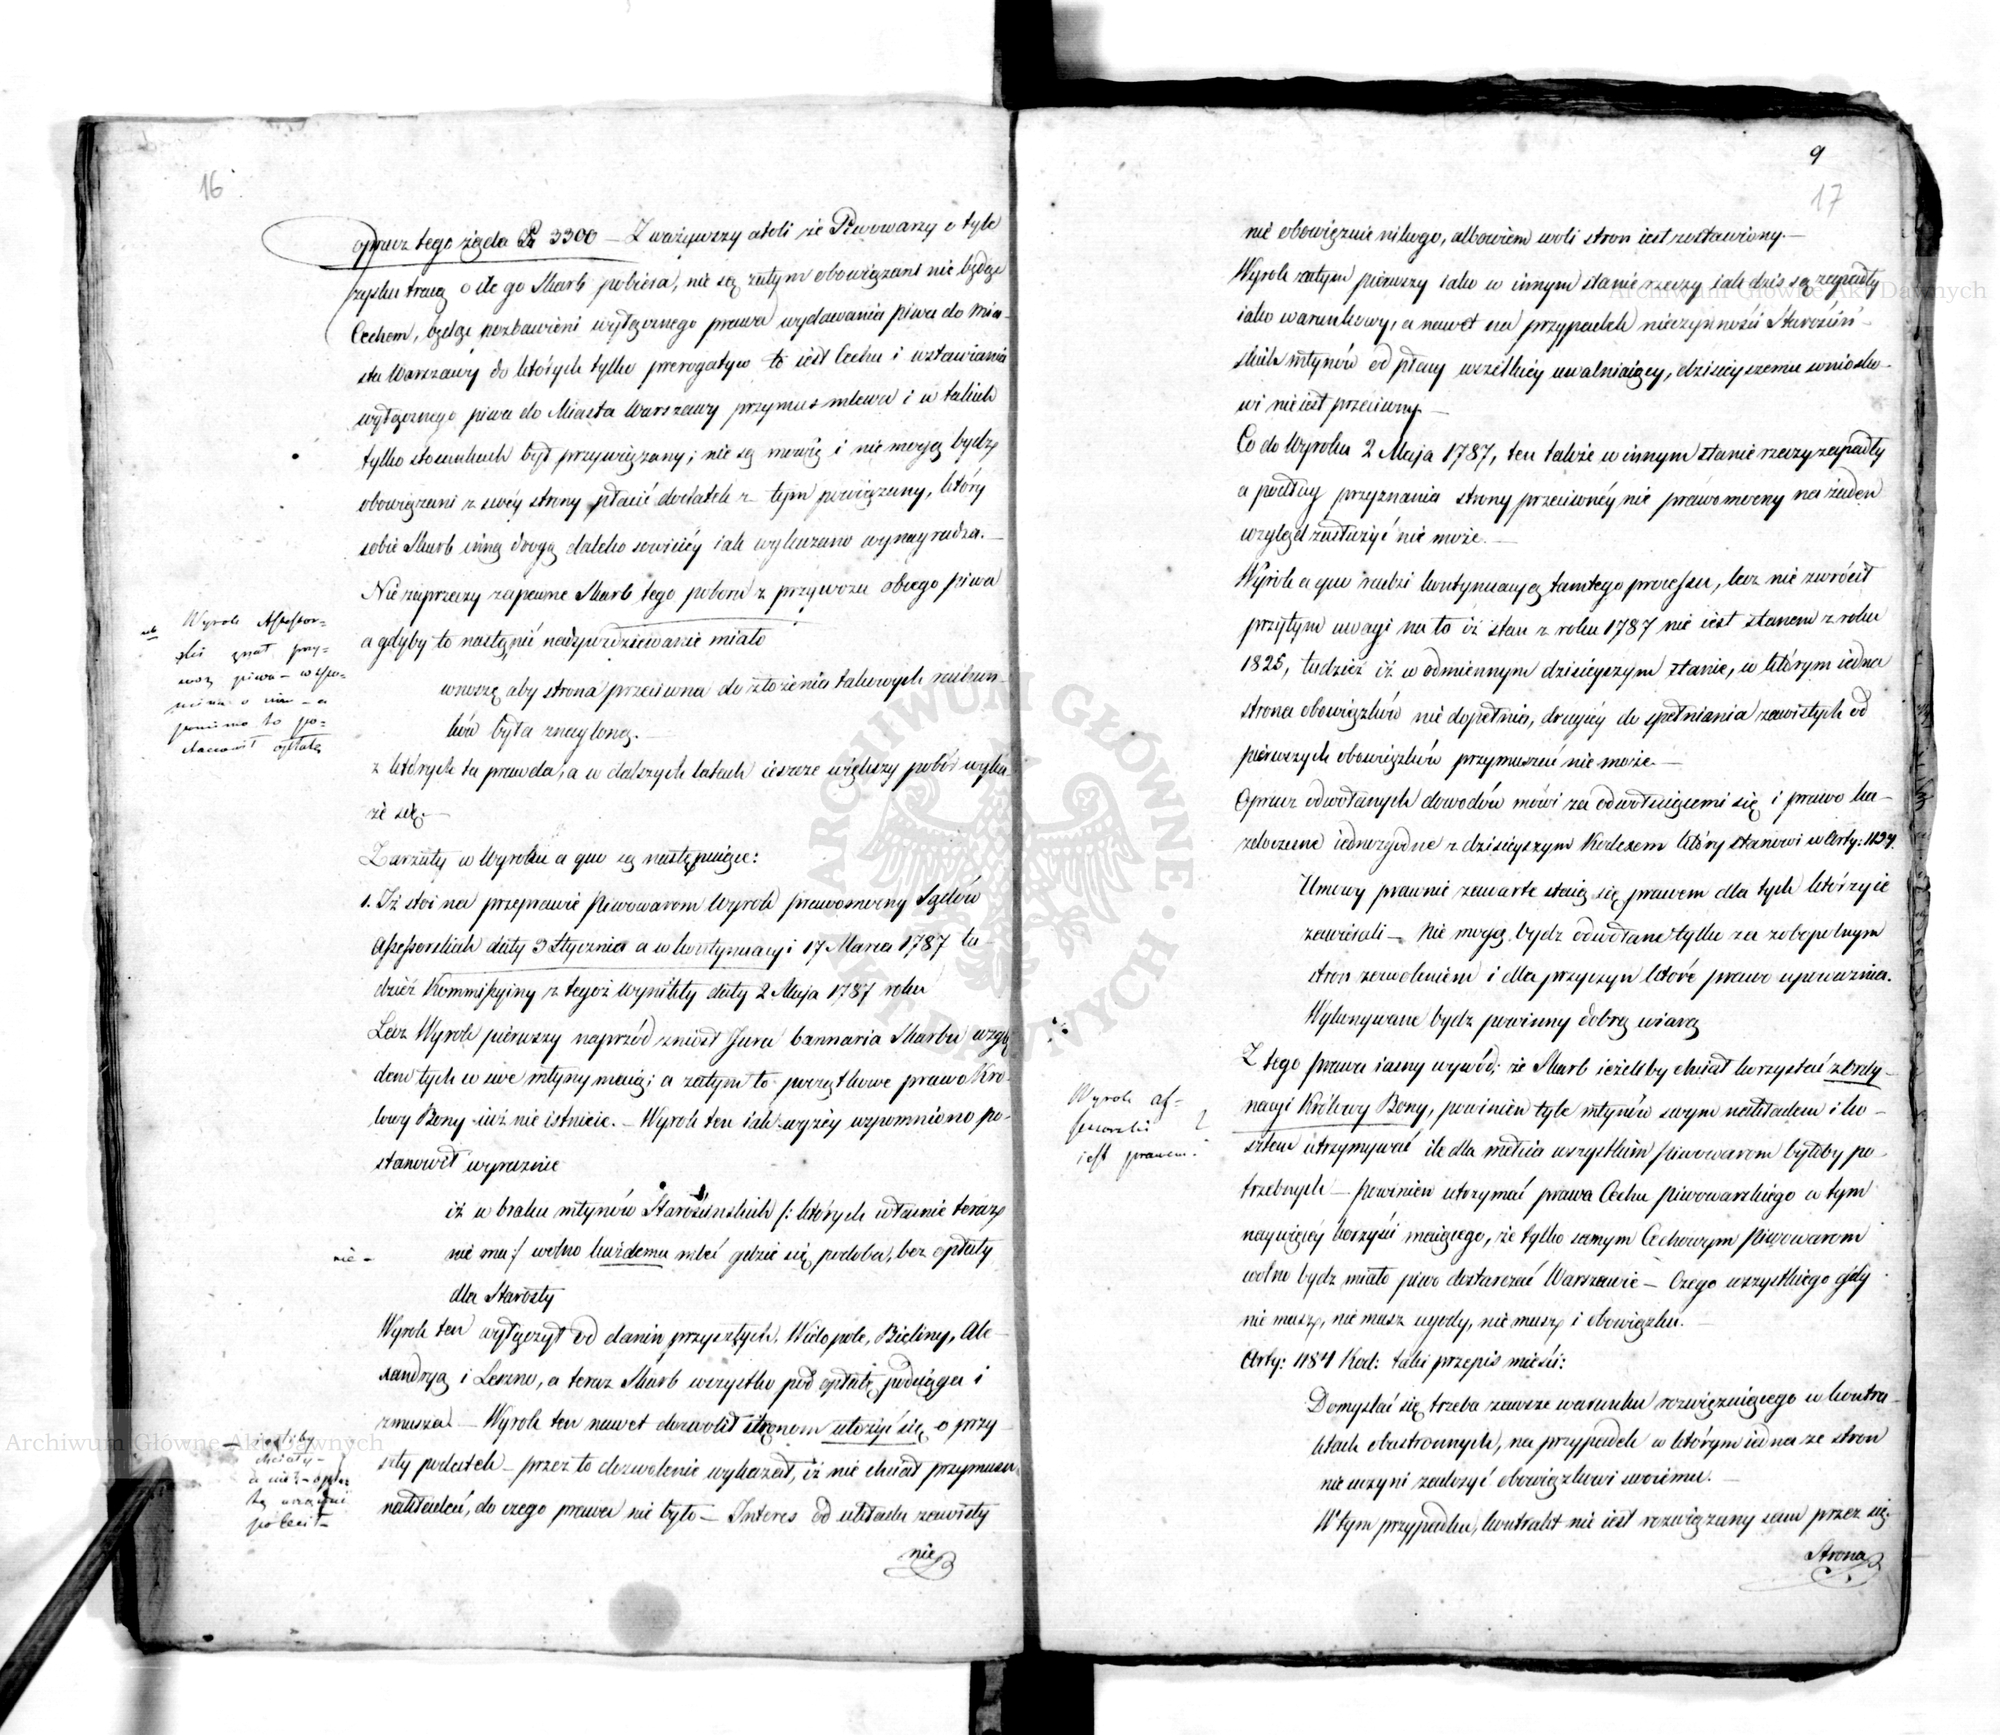 16
oprucz tego żąda Rs 3300 — Zważywszy atoli że Piwowarzy o tyle
zysku tracą o ile go Skarb pobiera, nie są zatym obowiązani nie będąc
Cechem, będąc pozbawieni wyłącznego prawa wydawania piwa do Mia-
sta Warszawy do których tylko prerogatyw to iest Cechu i wstawiania
wyłącznego piwa do Miasta Warszawy przymus mlewa i w takich
tylko stosunkach był przywiązany; nie są mowię i nie mogą bydź
obowiązani z swéy strony płacić dodatek z tym powiązany, który
sobie Skarb inną drogą daleko sowiciéy iak wykazano wynagradza. —
Nie zaprzeczy zapewne Skarb tego poboru z przywozu obcego piwa
a gdyby to nastąpić nadspodziewanie miało
wnoszę aby strona przeciwna do złożenia takowych rachun-
ków była znaglona. —
z których ta prawda, a w dalszych latach ieszcze większy pobór wyka
że się. —
Zarzuty w Wyroku a quo są następuiące:
1. Iż stoi na przeprawie Piwowarom Wyrok prawomocny Sądów
Assessorskich daty 3 Stycznia a w kontynuacyi 17 Marca 1787 tu-
dzież Kommissyiny z tegoż wynikły daty 2 Maja 1787 roku
Lecz Wyrok pierwszy naprzód zniosł Jura bannaria Skarbu wzglę
dem tych co swe młyny maią; a zatym to początkowe prawo Kró-
lowy Bony iuż nie istnieie. — Wyrok ten iak wyżéy wspomniono po-
stanowił wyraźnie
iż w braku młynów Starościńskich /: których właśnie teraz
nie ma :/ wolno każdemu mleć gdzie się podoba, bez opłaty
dla Starosty
Wyrok ten wyłączył od danin przyszłych. Wielopole, Bieliny, Ale-
xandryą i Leszno, a teraz Skarb wszystko pod opłatę podciąga i
zmusza. — Wyrok ten nawet dozwolił stronom ułożyć się o przy-
szły podatek — przez to dozwolenie wykazał, iż nie chciał przymusu
nakładać, do czego prawa nie było — Interes od układu zawisły
nie
Wyrok Assessor-
ski znał przy-
woz piwa — wspo-
mina o nim — a
pomimo to po-
stanowił opłatę
nie —
— ieżeliby
chciały —
a nie? — opła
tę
9
17
nie obowiązuie nikogo, albowiem woli stron iest zostawiony. —
Wyrok zatym pierwszy iako w innym stanie rzeczy iak dziś są zapadły
iako warunkowy, a nawet na przypadek nieczynności Starościń-
skich młynów od płacy wszelkiéy uwalniaiący, dzisieyszemu wniosko-
wi nie iest przeciwny. —
Co do Wyroku 2 Maja 1787, ten także w innym stanie rzeczy zapadły
a podług przyznania strony przeciwnéy nie prawomocny na żaden
wzgląd zasłużyć nie może. —
Wyrok a quo radzi kontynuacyą tamtego processu, lecz nie zwrócił
przytym uwagi na to iż stan z roku 1787 nie iest stanem z roku
1825, tudzież iż w odmiennym dzisieyszym stanie, w którym iedna
strona obowiązków nie dopełnia, drugiéy do spełniania zawisłych od
pierwszych obowiązków przymuszać nie może. —
Oprucz odwołanych dowodów mówi za odwołuiącemi się i prawo ka-
zdoczesne iednozgodne z dzisieyszym Kodexem który stanowi w Arty: 1134.
Umowy prawnie zawarte staią się prawem dla tych którzy ie
zawierali — Nie mogą bydź odwołane tylko za zobopolnym
stron zezwoleniem i dla przyczyn które prawo upoważnia.
Wykonywane bydź powinny dobrą wiarą
Z tego prawa iasny wywód; że Skarb ieżeliby chciał korzystać z Ordy-
nacyi Królowy Bony, powinien tyle młynów swym nakładem i ko-
sztem utrzymywać ile dla mełcia wszystkim Piwowarom byłoby po-
trzebnych — powinien utrzymać prawa Cechu Piwowarskiego w tym
naywięcéy korzyści maiącego, że tylko samym Cechowym Piwowarom
wolno bydź miało piwo dostarczać Warszawie — Czego wszystkiego gdy
nie masz, nie masz ugody, nie masz i obowiązku. —
Arty: 1184 Kod: taki przepis mieści:
Domyślać się trzeba zawsze warunku rozwięzuiącego w kontra-
ktach obustronnych, na przypadek w którym iedna ze stron
nie uczyni zadosyć obowiązkowi swoiemu. —
W tym przypadku, kontrakt nie iest rozwiązany sam przez się.
Strona
Wyrok as-
sessorski
iest prawem. ?